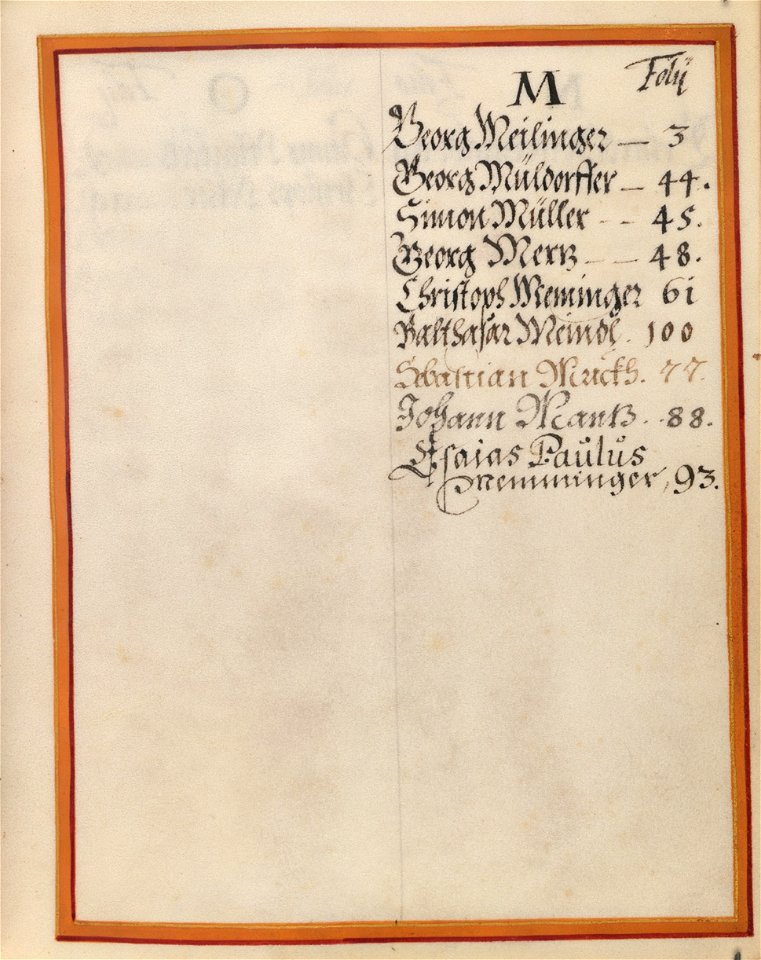 M Folij
Georg Meilinger — 3
Georg Müldorffer — 44.
Simon Müller - - 45.
Georg Mertz — — 48.
Christoph Meminger 61
Balthasar Meindl. 100
Sebastian Mrckh. 77.
Johann Mantz. . 88.
Esaias Paulus
Memminger, 93.